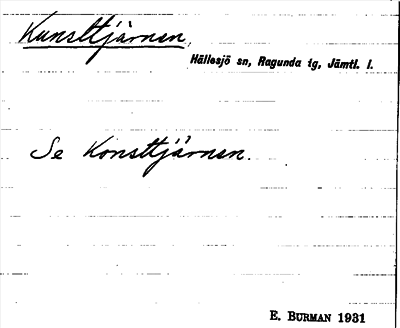 Kunsttjärnen,
Hällesjö sn, Ragunda tg, Jämtl. l.
Se Konsttjärnen.
E. BURMAN 1931